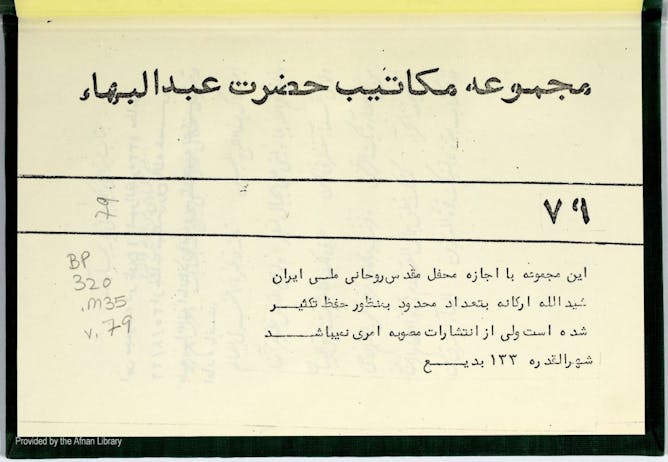 مجموعه مکاتیب حضرت عبدالبهاء
٧٩
79
BP
320
.M35
v.79
این مجموعه با اجازه محفل مقدس روحانی ملی ایران
شیدالله ارکانه بتعداد محدود بمنظور حفظ تکثیر
شده است ولی از انتشارات مصوبه امری نمیباشد
شهرالقدره ١٣٣ بدیع
Provided by the Afnan Library